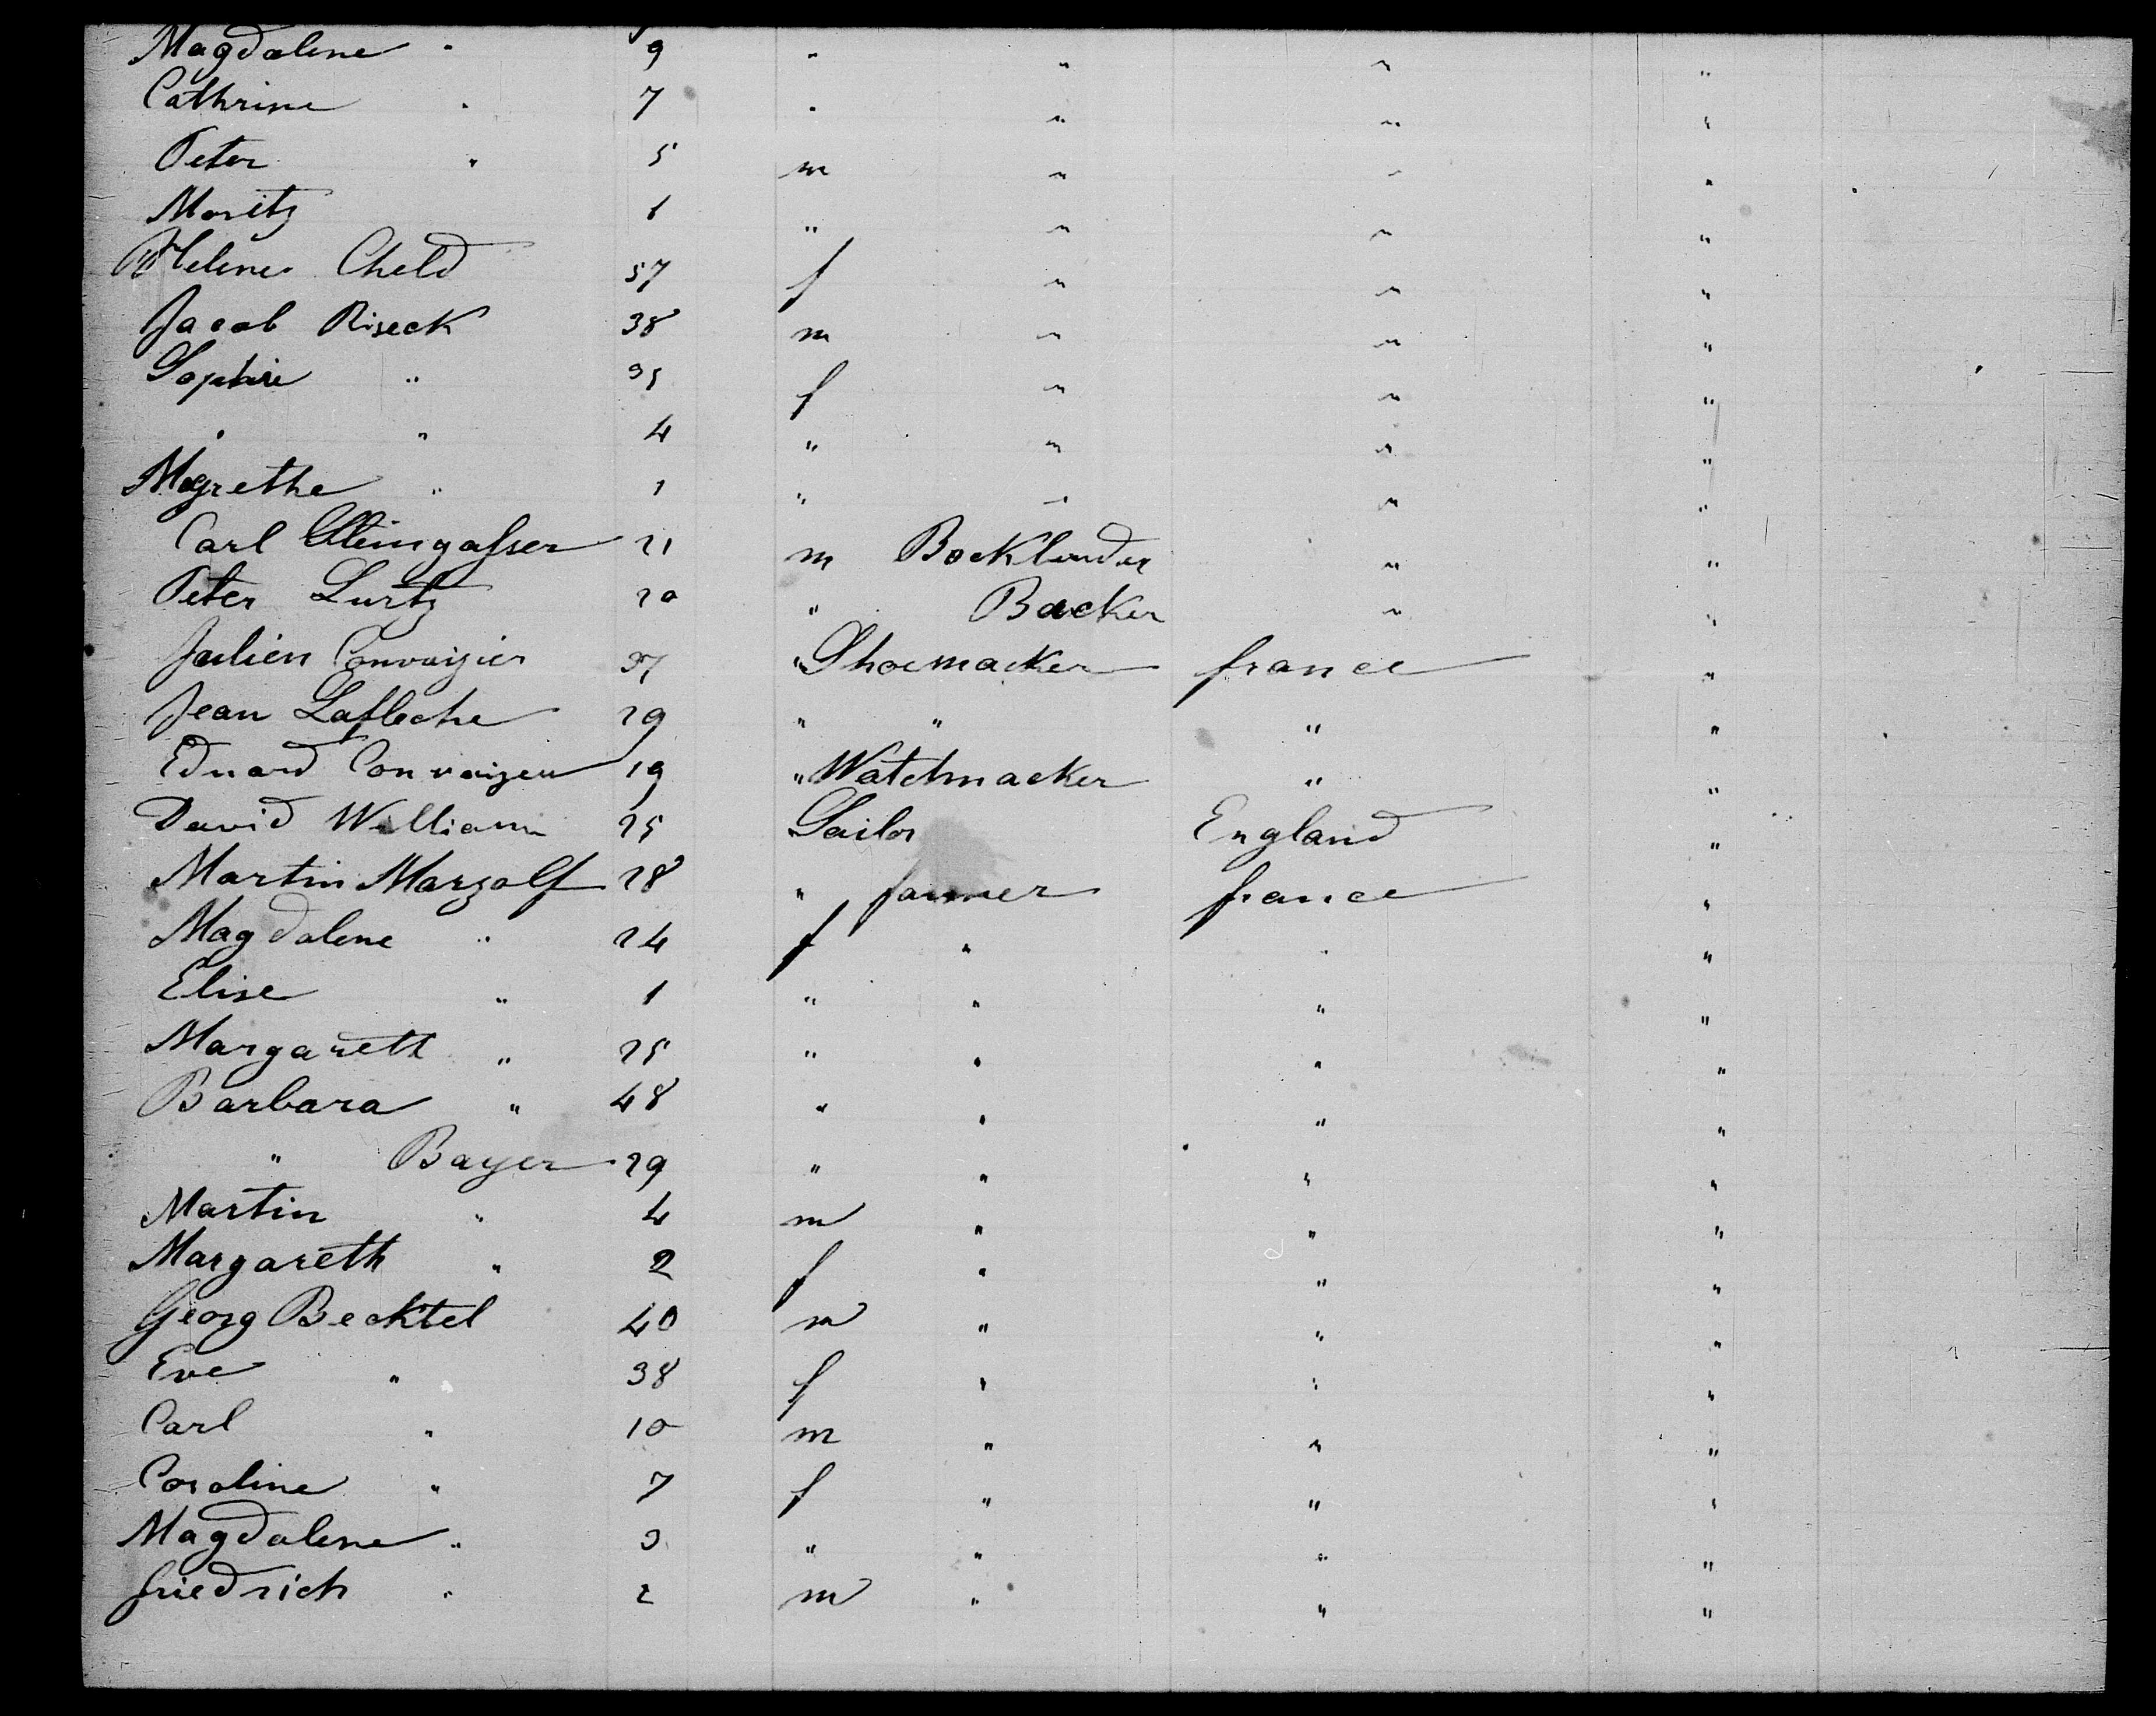 Magdalene " 9 " " " "
Cathrine " 7 " " " "
Peter " 5 m " " "
Moritz 1 " " " "
Helene Cheld 57 f " " "
Jacob Riseck 38 m " " "
Sophie " 35 f " " "
" " 4 " " " "
Mgrethe " 1 " " " "
Carl Steingasser 21 m Bockbinder " "
Peter Lurtz 20 " Backer " "
Julien Convaizier 37 " Shoemacker france "
Jean Lafleche 29 " " " "
Eduard Convaizeu 19 " Watchmacker " "
David William 25 " Sailor England "
Martin Marzolf 28 " farmer france "
Magdalene " 24 f " " "
Elise " 1 " " " "
Margareth " 25 " " " "
Barbara " 48 " " " "
" Bayer 29 " " " "
Martin " 4 m " " "
Margareth " 2 f " " "
Georg Becktel 40 m " " "
Eve " 38 f " " "
Carl " 10 m " " "
Caroline " 7 f " " "
Magdalene " 3 " " " "
friedrich " 2 m " " "